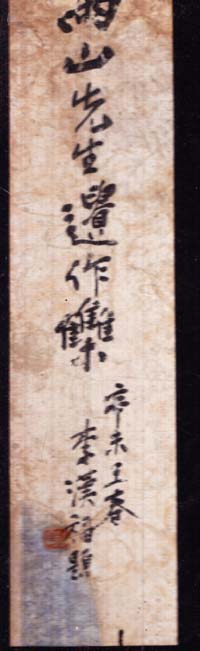 雨山先生遺作雧
辛未王春
李漢福題